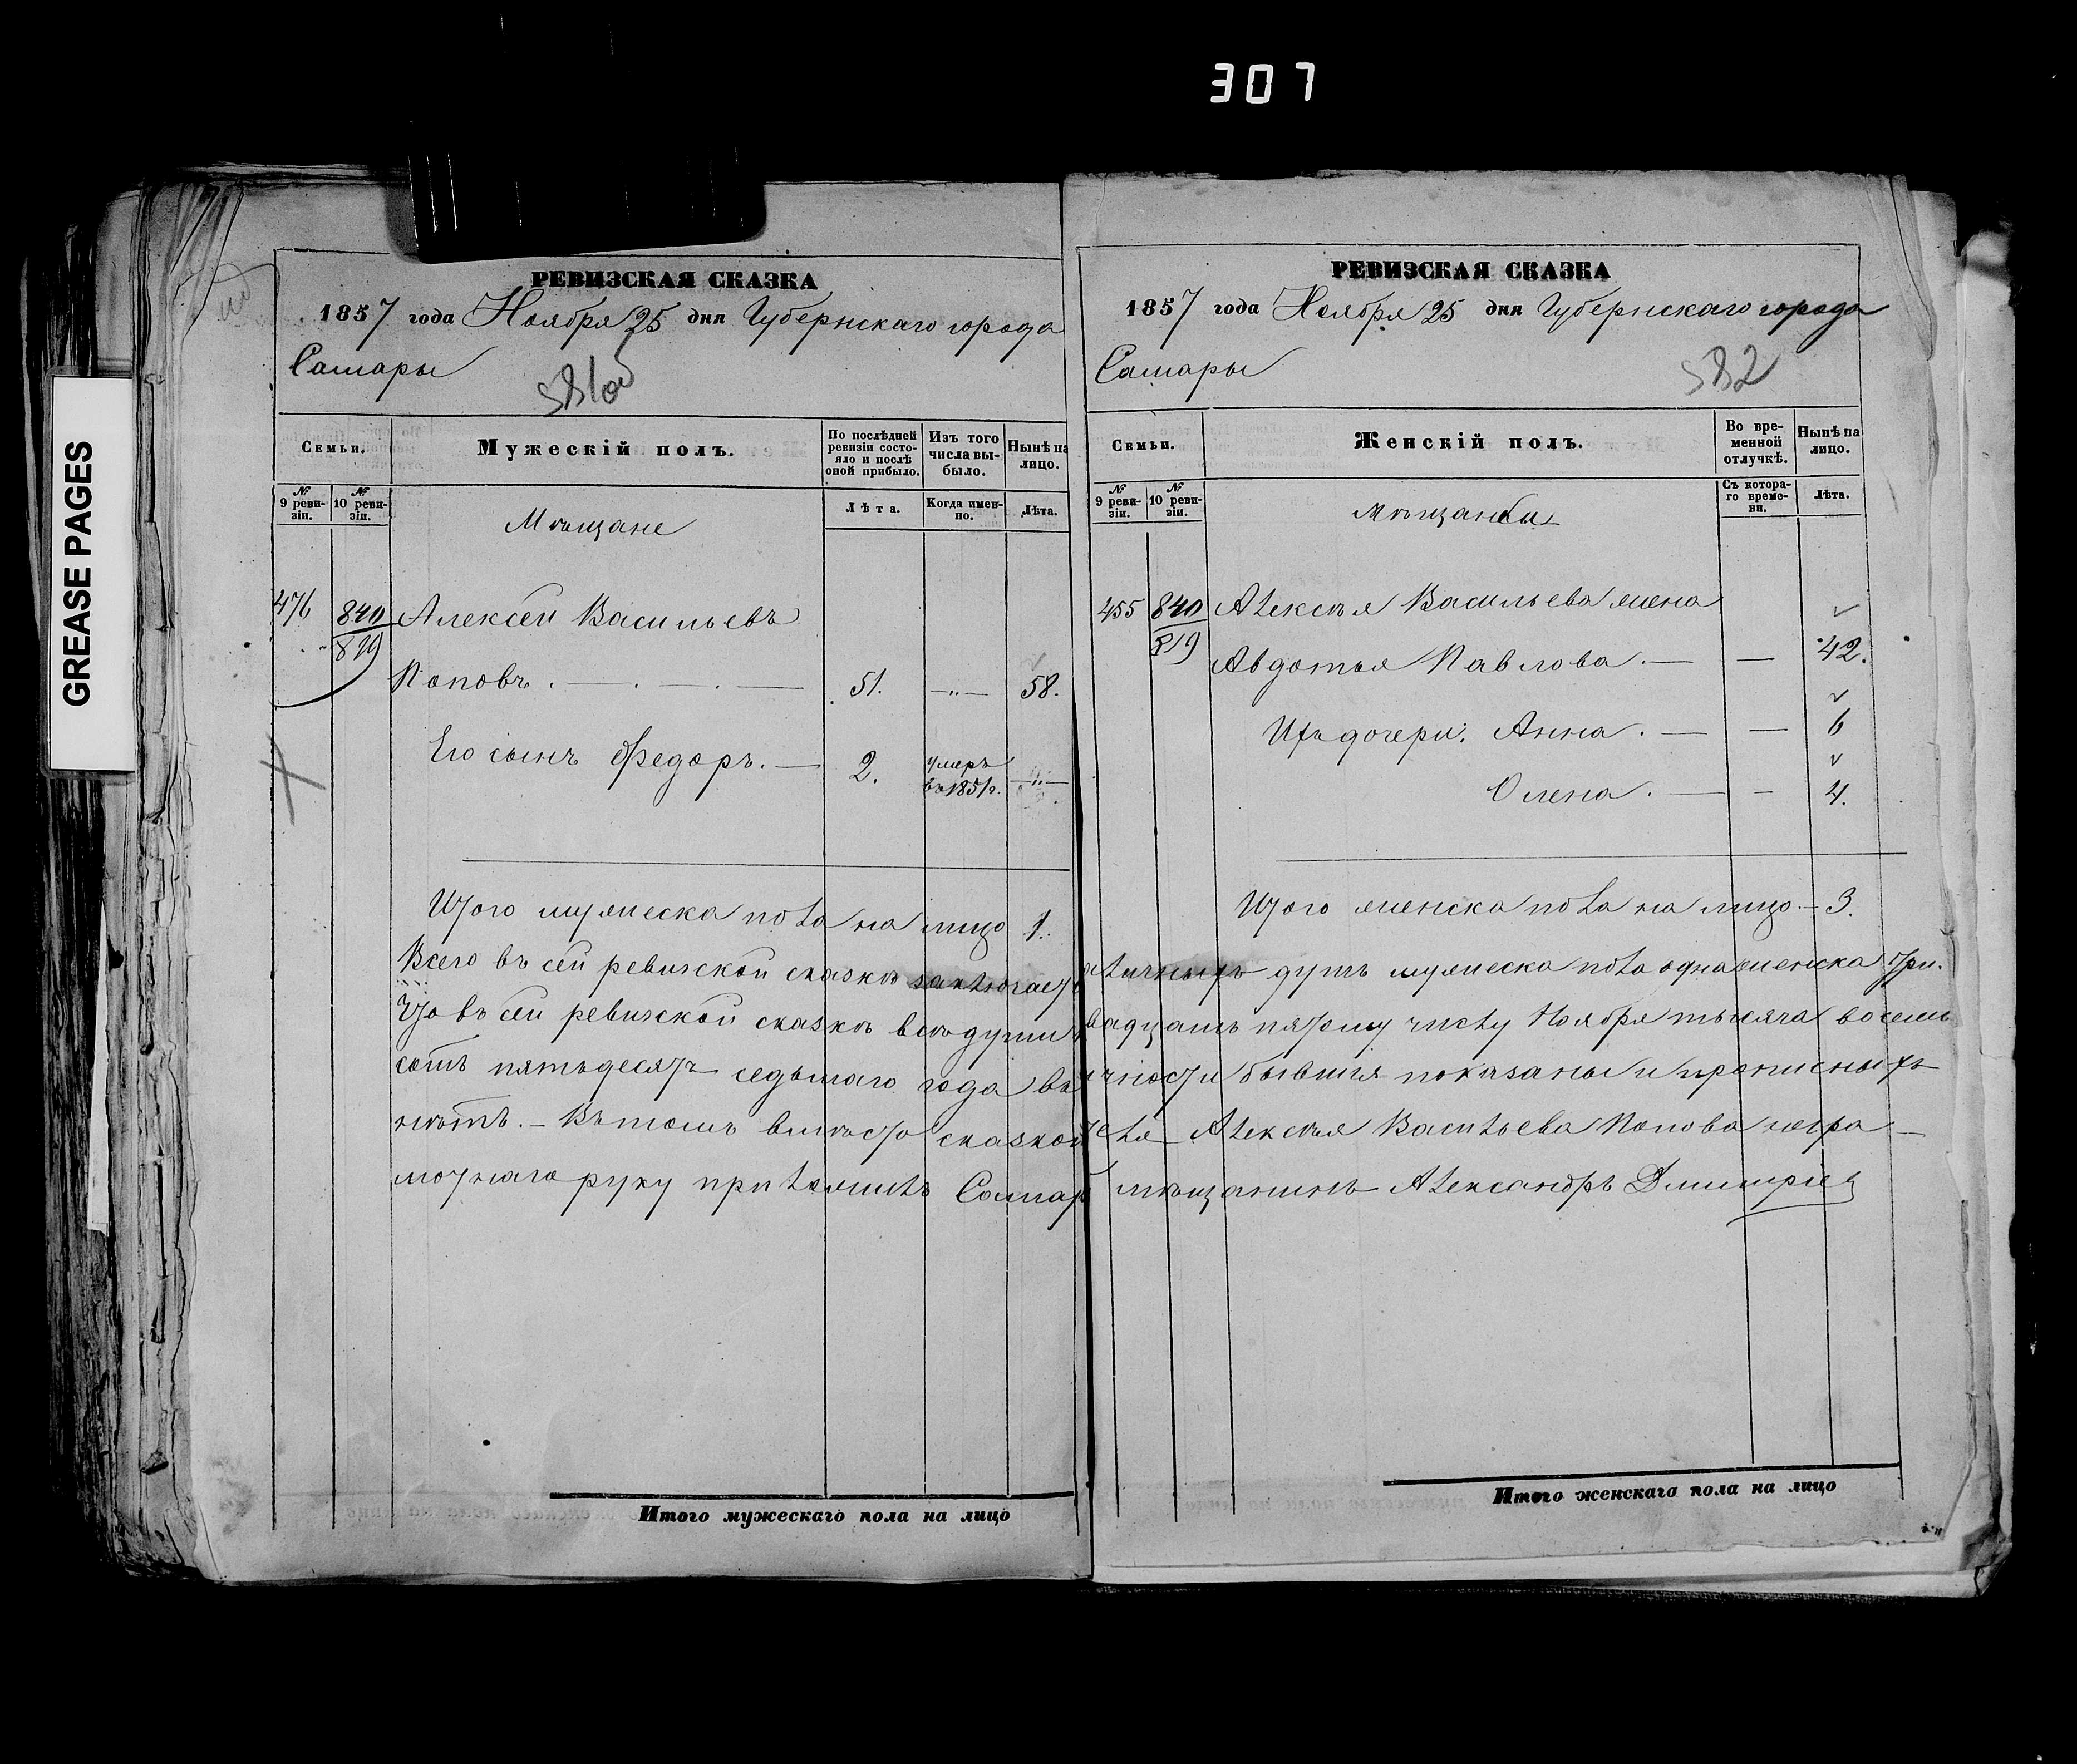 307
GREASE PAGES
РЕВИЗСКАЯ СКАЗКА
1857 года Ноября 25 дня Губернскаго города
Самары
581об
Семьи.
Мужескій полъ.
По послѣдней ревизіи состояло и послѣ оной прибыло.
Изъ того числа выбыло.
Нынѣ на лицо.
№ 9 ревизіи.
№ 10 ревизіи.
Лѣта.
Когда именно.
Лѣта.
Мѣщане
476 840 Алексей Васильевъ
819
Поповъ. 51. —"— 58.
Его сынъ Федоръ. — 2. умеръ въ 1851 г. —"—
Итого мужеска пола на лицо 1.
Всего въ сей ревизской сказкѣ заключает
Что въ сей ревизской сказкѣ всѣ души
сотъ пятьдесятъ седьмаго года въ
нѣтъ. — Въ томъ вмѣсто сказкой
мотнаго руку приложилъ Самар
Итого мужескаго пола на лицо
РЕВИЗСКАЯ СКАЗКА
1857 года Ноября 25 дня Губернскаго города
Самары
582
Семьи.
Женскій полъ.
Во временной отлучкѣ.
Нынѣ на лицо.
№ 9 ревизіи.
№ 10 ревизіи.
Съ котораго времени.
Лѣта.
Мѣщанки
455 840 Алексѣя Васильева жена
819
Авдотья Павлова. — — 42.
Ихъ дочери. Анна. — — 6
Олена. — — 4.
Итого женска пола на лицо — 3.
аличныхъ душъ мужеска пола одна женска три.
вадцать пятому числу Ноября тысяча восемь
ичности бывшія показаны и прописныхъ
Алексѣя Васильева Попова негра—
мѣщанинъ Александръ Дмитріев
Итого женскаго пола на лицо